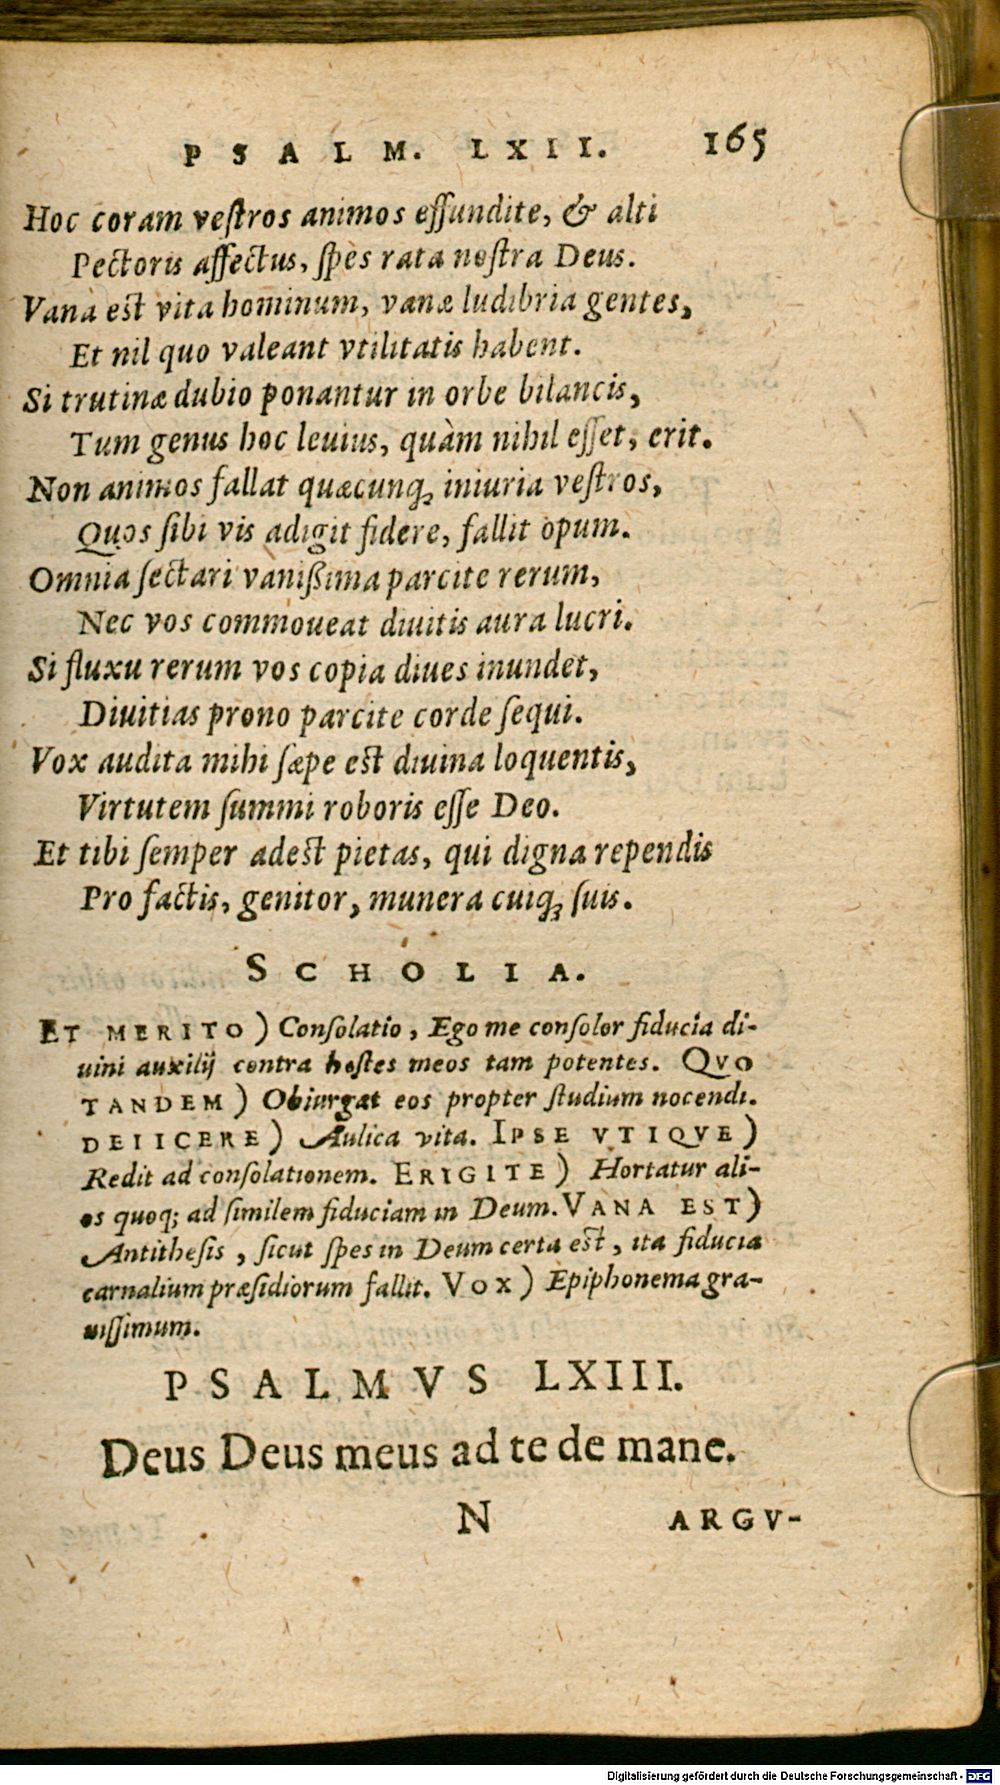 PSALM. LXII. 165
Hoc coram veſtros animos effundite, & alti
Pectoris affectus, ſpes rata noſtra Deus.
Vana eſt vita hominum, vanæ ludibria gentes,
Et nil quo valeant vtilitatis habent.
Si trutinæ dubio ponantur in orbe bilancis,
Tum genus hoc leuius, quàm nihil eſſet, erit.
Non animos fallat quæcunq; iniuria veſtros,
Quos ſibi vis adigit fidere, fallit opum.
Omnia ſectari vaniſſima parcite rerum,
Nec vos commoueat diuitis aura lucri.
Si fluxu rerum vos copia diues inundet,
Diuitias prono parcite corde ſequi.
Vox audita mihi ſæpe eſt diuina loquentis,
Virtutem ſummi roboris eſſe Deo.
Et tibi ſemper adeſt pietas, qui digna rependis
Pro factis, genitor, munera cuiq; ſuis.
SCHOLIA.
ET MERITO) Conſolatio, Ego me conſolor fiducia di-
uini auxilij contra hoſtes meos tam potentes. QVO
TANDEM) Obiurgat eos propter ſtudium nocendi.
DEIICERE) Aulica vita. IPSE VTIQVE)
Redit ad conſolationem. ERIGITE) Hortatur ali-
os quoq; ad ſimilem fiduciam in Deum. VANA EST)
Antitheſis, ſicut ſpes in Deum certa eſt, ita fiducia
carnalium præſidiorum fallit. VOX) Epiphonema gra-
uiſſimum.
PSALMVS LXIII.
Deus Deus meus ad te de mane.
N ARGV-
Digitalisierung gefördert durch die Deutsche Forschungsgemeinschaft - DFG